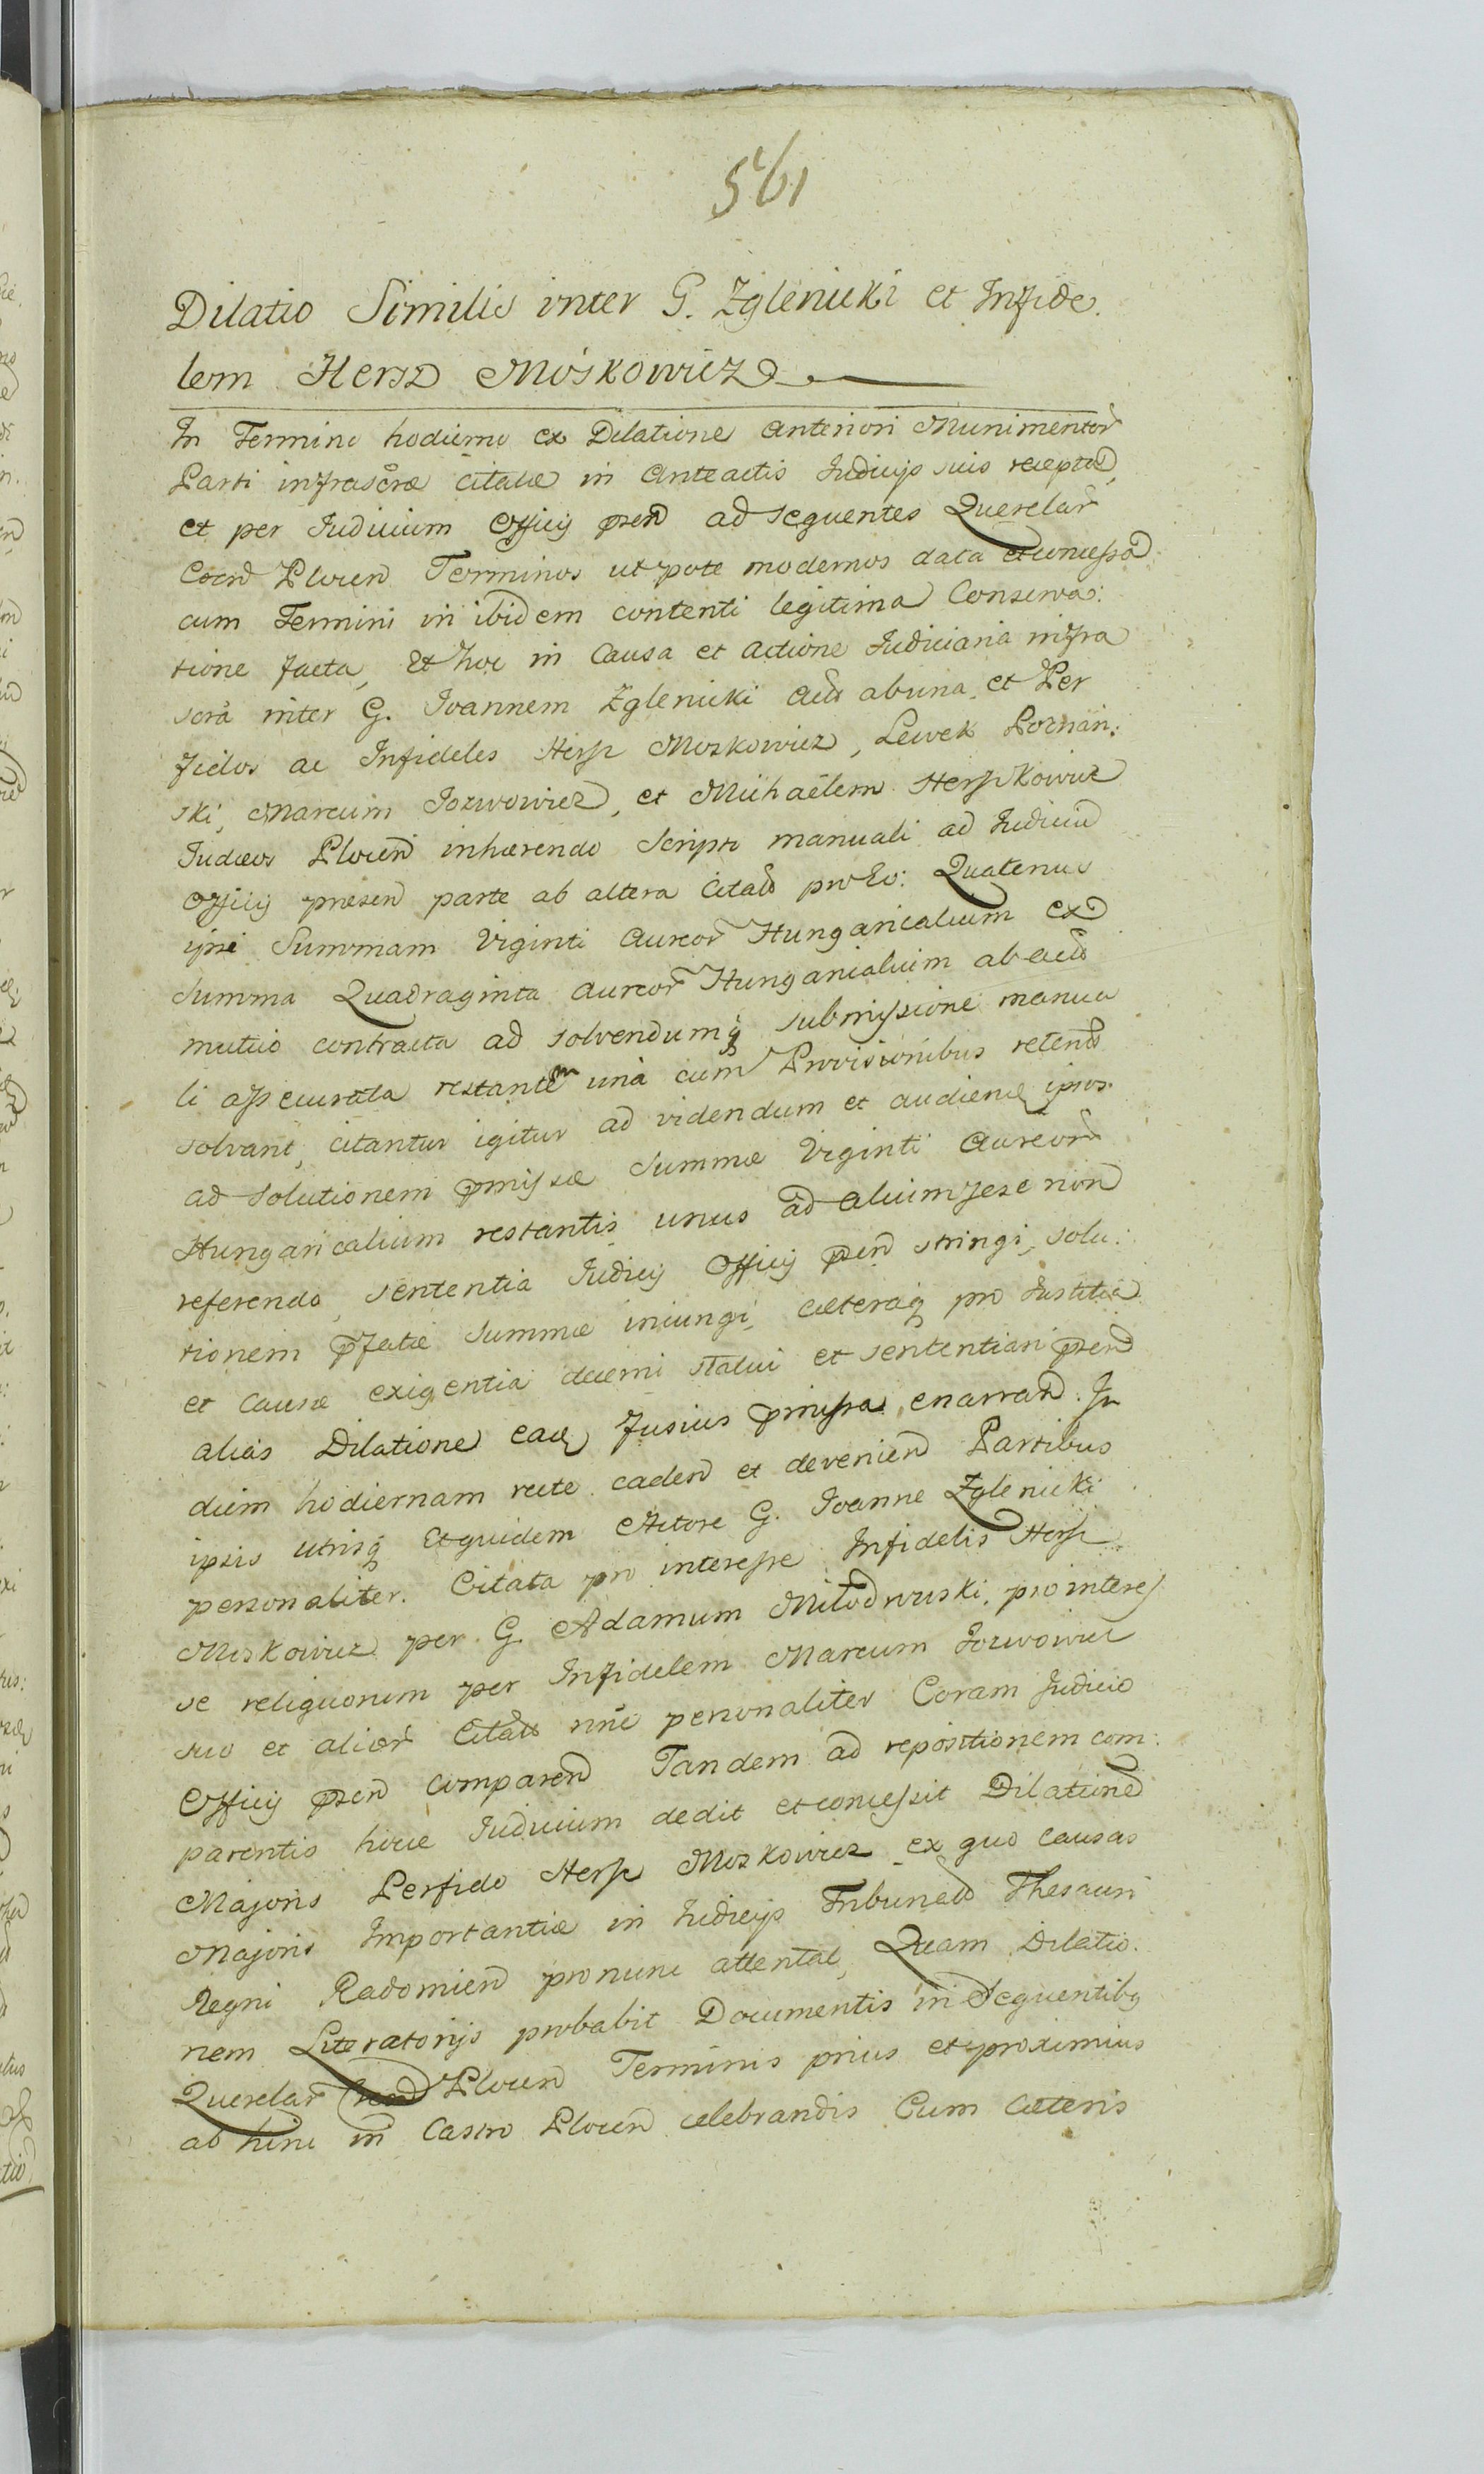 561
Dilatio Similis inter G. Zglenicki et Infide.
lem Hersz Moskowicz
In Termino hodierno ex Dilatione anteriori Munimentor̃
Parti infrascræ citatæ in Anteactis Iudicijs suis recepta,
et per Iudicium Officij psen ad sequentes Querelar̃
Plocen Terminos utpote modernos data et concessa
cum Termini in ibidem contenti legitima Conserva:
tione facta, Et hoc in Causa et actione Iudiciaria infra
scrã inter G. Ioannem Zglenicki ab una, et Per
fidos ac Infideles Hersz Moskowicz, Lewek Poznan:
ski, Marcum Jozwowicz, et Michaëlem Herszkowicz
Iudæos Plocen inhærendo Scripto manuali ad Iudiciũ
Officij præsen parte ab altera Citatos Quatenus
ipsi Summam Viginti aureor̃ Hungaricalium ex
Summa Quadraginta aureor̃ Hungaricalium ab
mutuo contracta ad solvendumq submissione manua
li assecurata restantem unà cum Provisionibus
solvant, citantur igitur ad videndum et audiend ipsos
ad Solutionem pmissæ Summæ Viginti Aureor̃
Hungaricalium restantis unus ad alium sese non
referendo, sententia Iudicij Officij psen stringi, solu:
tionem pfatæ Summæ iniungi, cæteraq pro Iustitia
et Causæ exigentia decerni statui et sententiari psen
alias Dilatione fusius pmissa enarran. In
diem hodiernam recte caden et devenien Partibus
ipsis utrisq Et quidem Actore G. Ioanne Zglenicki
personaliter. Citata pro interesse Infidelis Hersz
Moskowicz per G. Adamum pro interes
se reliquorum per Infidelem Marcum Jozwowicz
suo et alior̃ Citatt nõie personaliter Coram Iudicio
Officij psen comparen Tandem ad repositionem com:
parentis hocce Iudicium dedit et concessit Dilationẽ
Majoris Perfido Hersz Moskowicz ex quo causas
Majoris Importantiæ in Iudicijs Thesauri
Regni Radomien pro nunc attentat, Quam Dilatio.
nem Literatorijs probabit Documentis in Sequentibq
Querelar̃ Plocen Terminis prius et proximius
ab hinc in Castro Plocen celebrandis Cum Cæteris